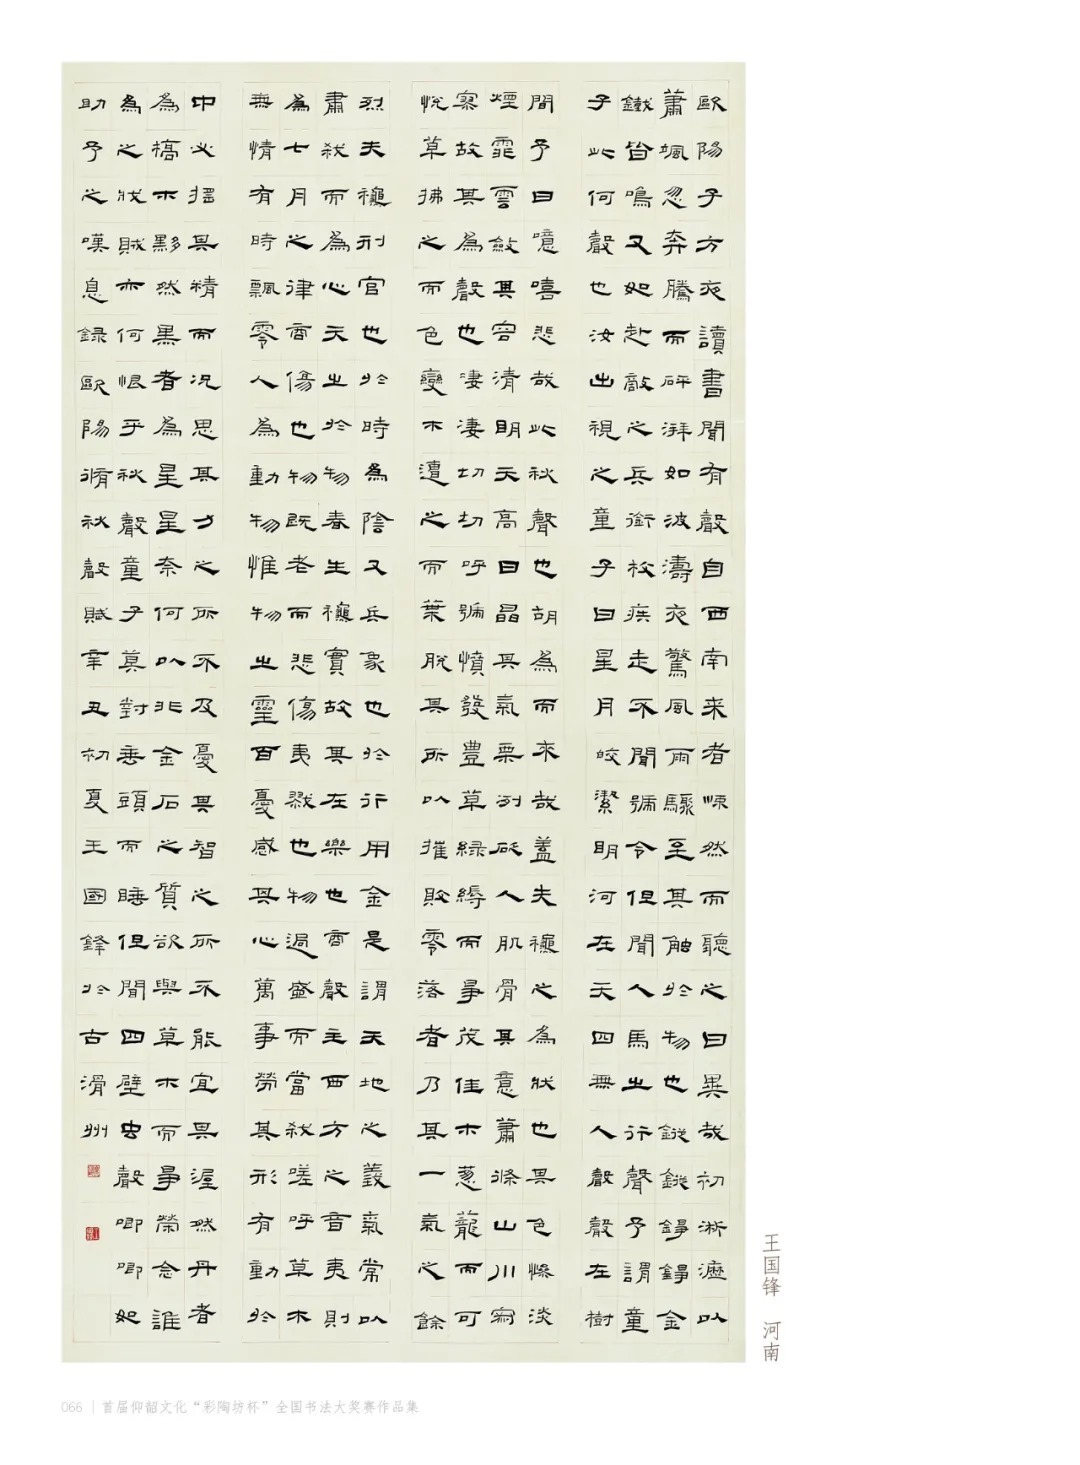 歐陽子方夜讀書聞有聲自西南来者悚然而聽之曰異哉初淅瀝以
蕭颯忽奔騰而砰湃如波濤夜驚風雨驟至其触於物也鏦鏦錚錚金
鐵皆鳴又如赴敵之兵銜枚疾走不聞號令但聞人馬之行聲予謂童
子此何聲也汝出視之童子曰星月皎潔明河在天四無人聲聲在樹
間予曰噫嘻悲哉此秋聲也胡為而来哉蓋夫穐之為狀也其色慘淡
煙霏雲斂其容清明天高日晶其氣栗冽砭人肌骨其意蕭條山川寂
寥故其為聲也淒淒切切呼號憤發豐草緑縟而争茂佳木葱蘢而可
悅草拂之而色變木遭之而葉脫其所以摧敗零落者乃其一氣之餘
烈夫穐刑官也於時為陰又兵象也於行用金是謂天地之義氣常以
肅殺而為心天之於物春生穐實故其在樂也商聲主西方之音夷則
為七月之律商傷也物既老而悲傷夷戮也物過盛而當殺嗟呼草木
無情有時飄零人為動物惟物之靈百憂感其心萬事勞其形有動於
中必摇其精而况思其力之所不及憂其智之所不能宜其渥然丹者
為槁木黟然黑者為星星奈何以非金石之質欲與草木而争榮念誰
為之戕賊亦何恨乎秋聲童子莫對垂頭而睡但聞四壁虫聲唧唧如
助予之嘆息録歐陽脩秋聲賦辛丑初夏王國鋒於古滑州
王国锋 河南
066 | 首届仰韶文化“彩陶坊杯”全国书法大奖赛作品集